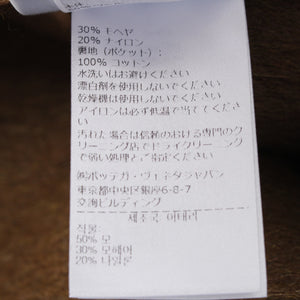 30% モヘヤ
20% ナイロン
裏地（ポケット）；
100% コットン
水洗いはお避けください
漂白剤を使用しないでください
乾燥機は使用しないでください
アイロンは必ず低温で当ててくださ
い
汚れた場合は信頼のおける専門のク
リーニング店でドライクリーニング
で弱い処理とご指定ください
㈱ボッテガ・ヴェネタジャパン
東京都中央区銀座6-8-7
交海ビルディング
제조국: 이태리
직물:
50% 모
30% 모헤어
20% 나일론